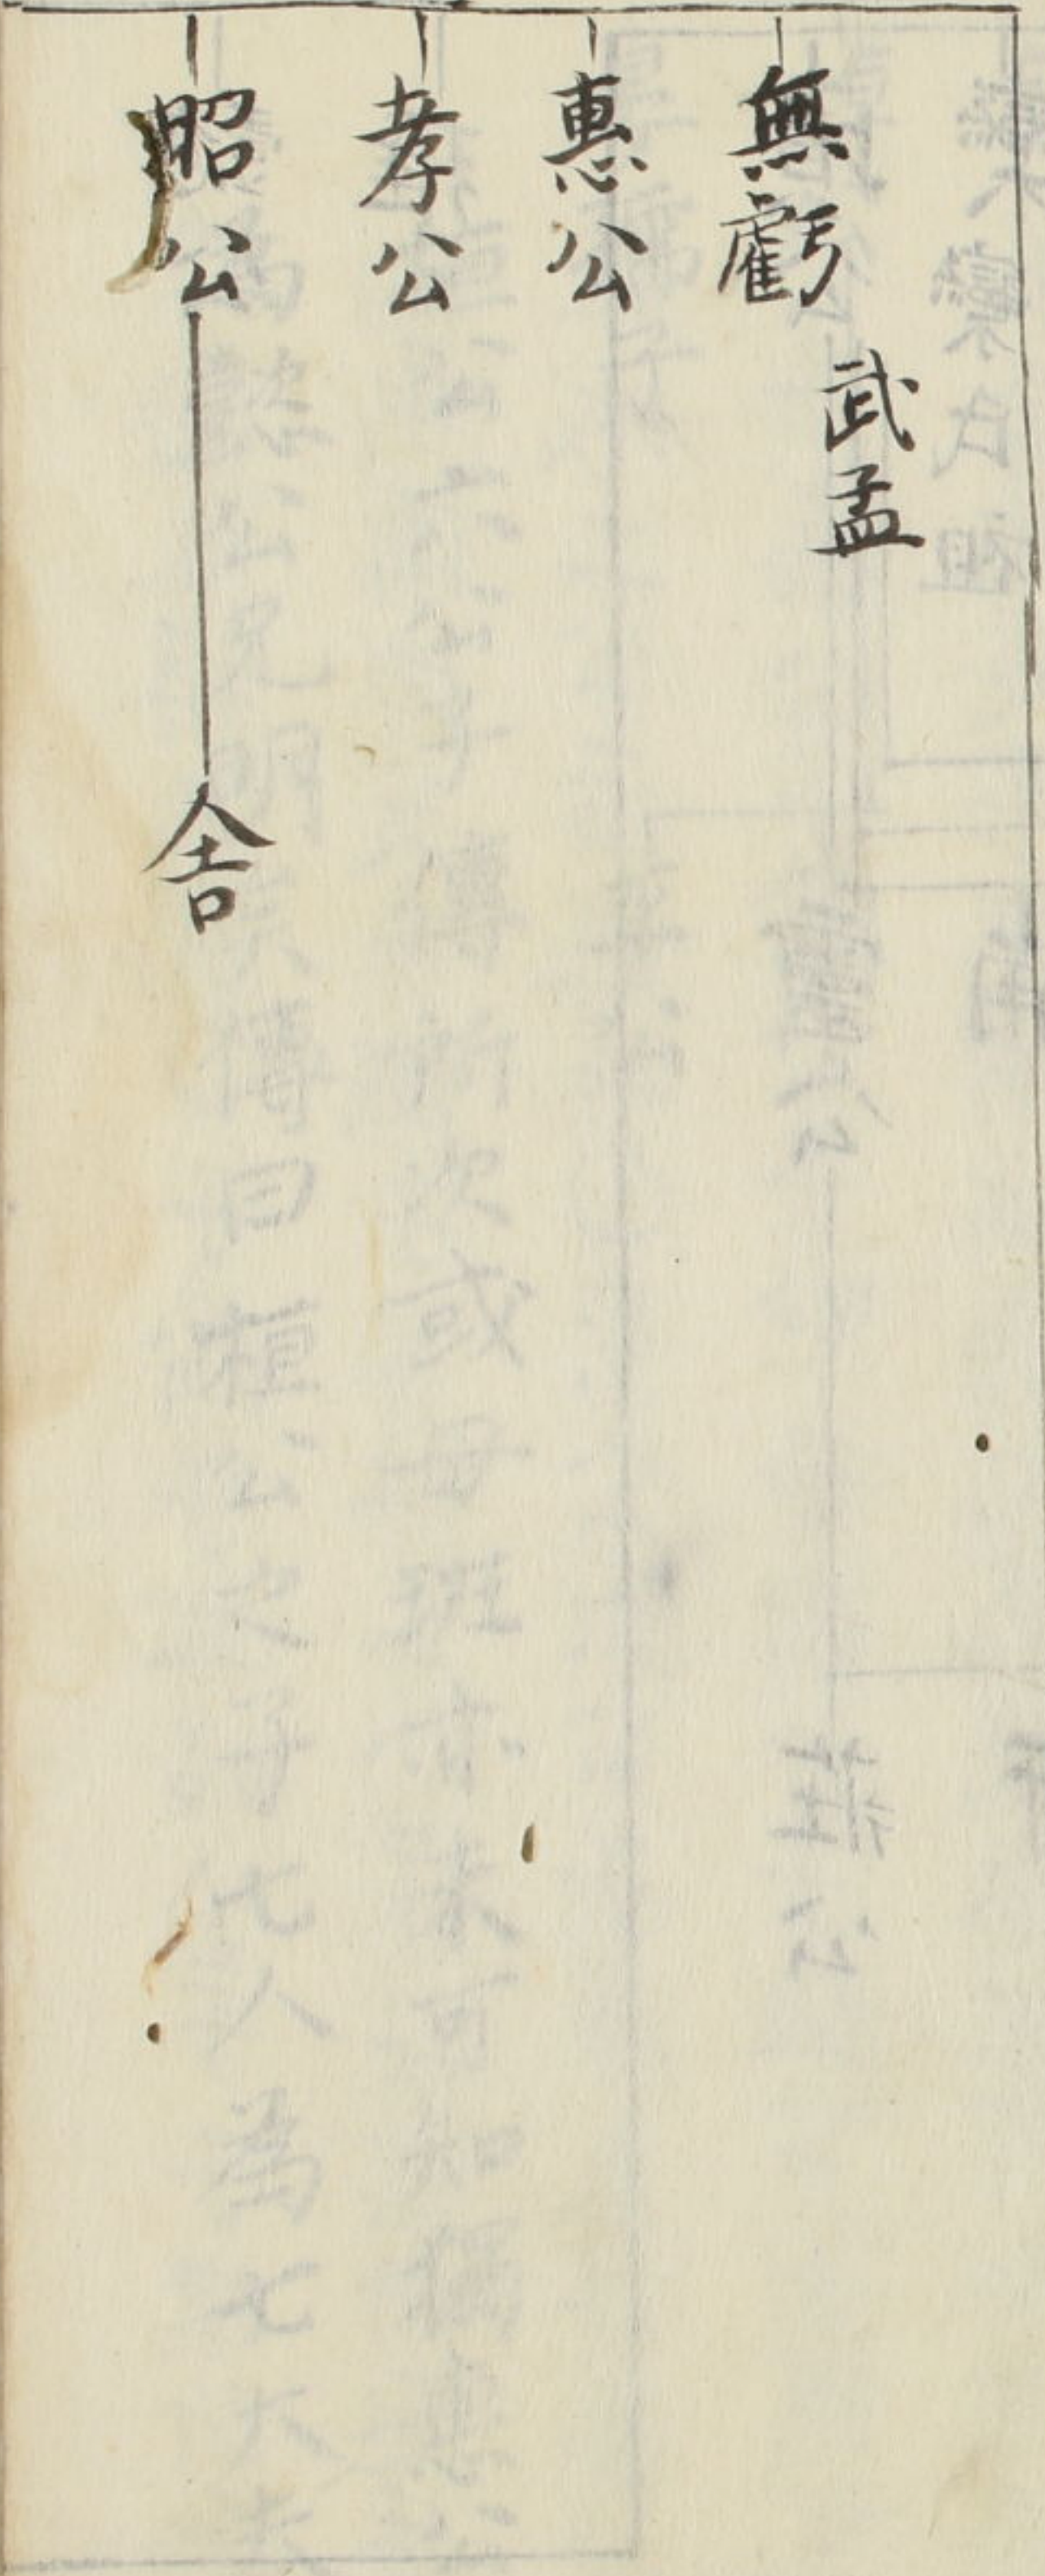 無虧
武孟
惠公
孝公
昭公
舍